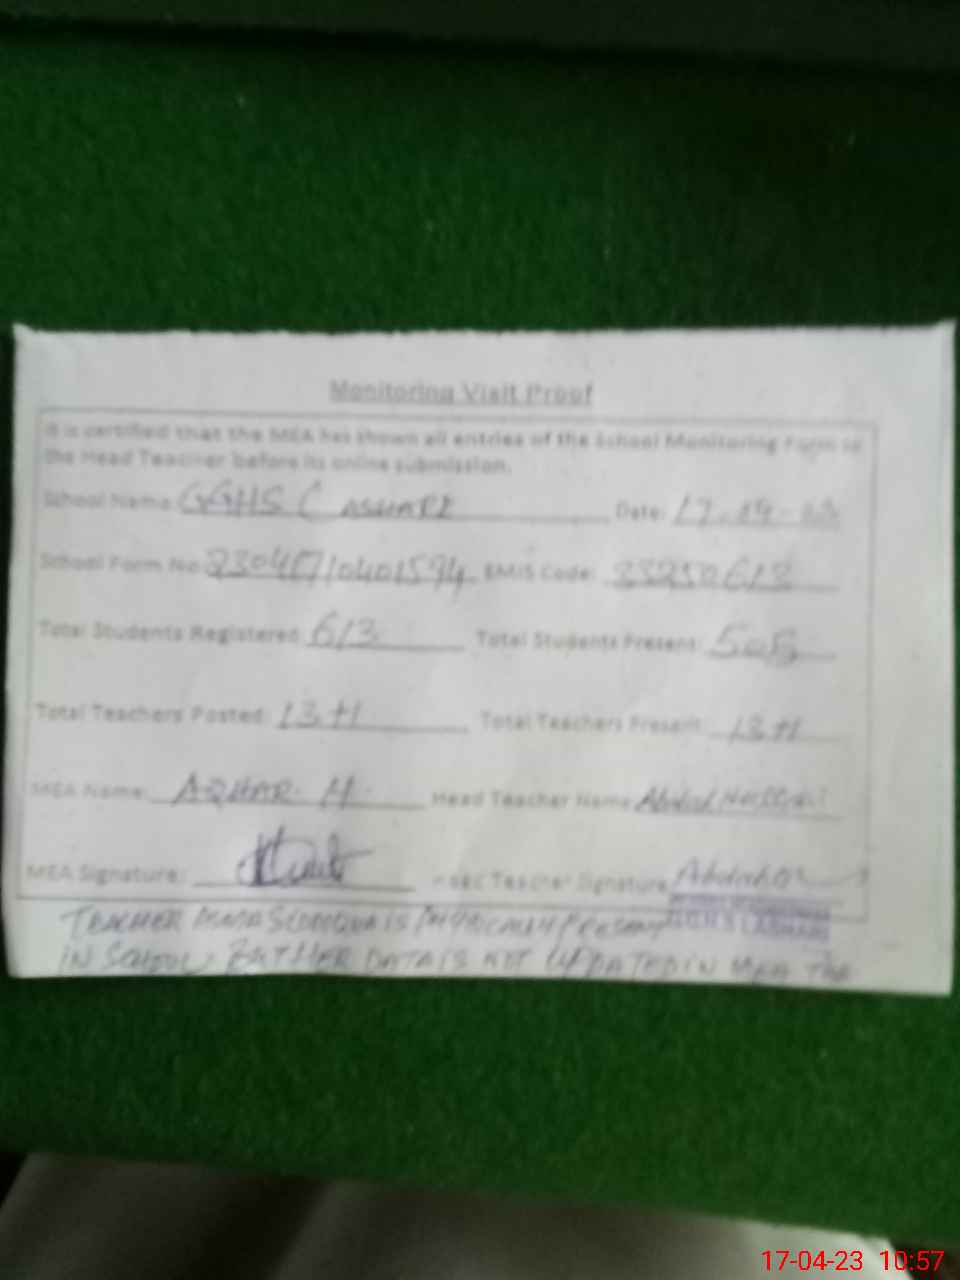 Monitoring Visit Proof
It is certified that the MEA has shown all entries of the School Monitoring Form to
the Head Teacher before its online submission.
School Name: GGHS Date: 17-04-23
School Form No: EMIS Code:
Total Students Registered: 613 Total Students Present: 505
Total Teachers Posted: 13+1 Total Teachers Present: 13+1
MEA Name: AZHAR H. Head Teacher Name:
MEA Signature: Head Teacher Signature:
TEACHER IS PHYSICALLY PRESENT
IN SCHOOL BUT HER DATA IS NOT UPDATED IN MEA TAB
17-04-23 10:57